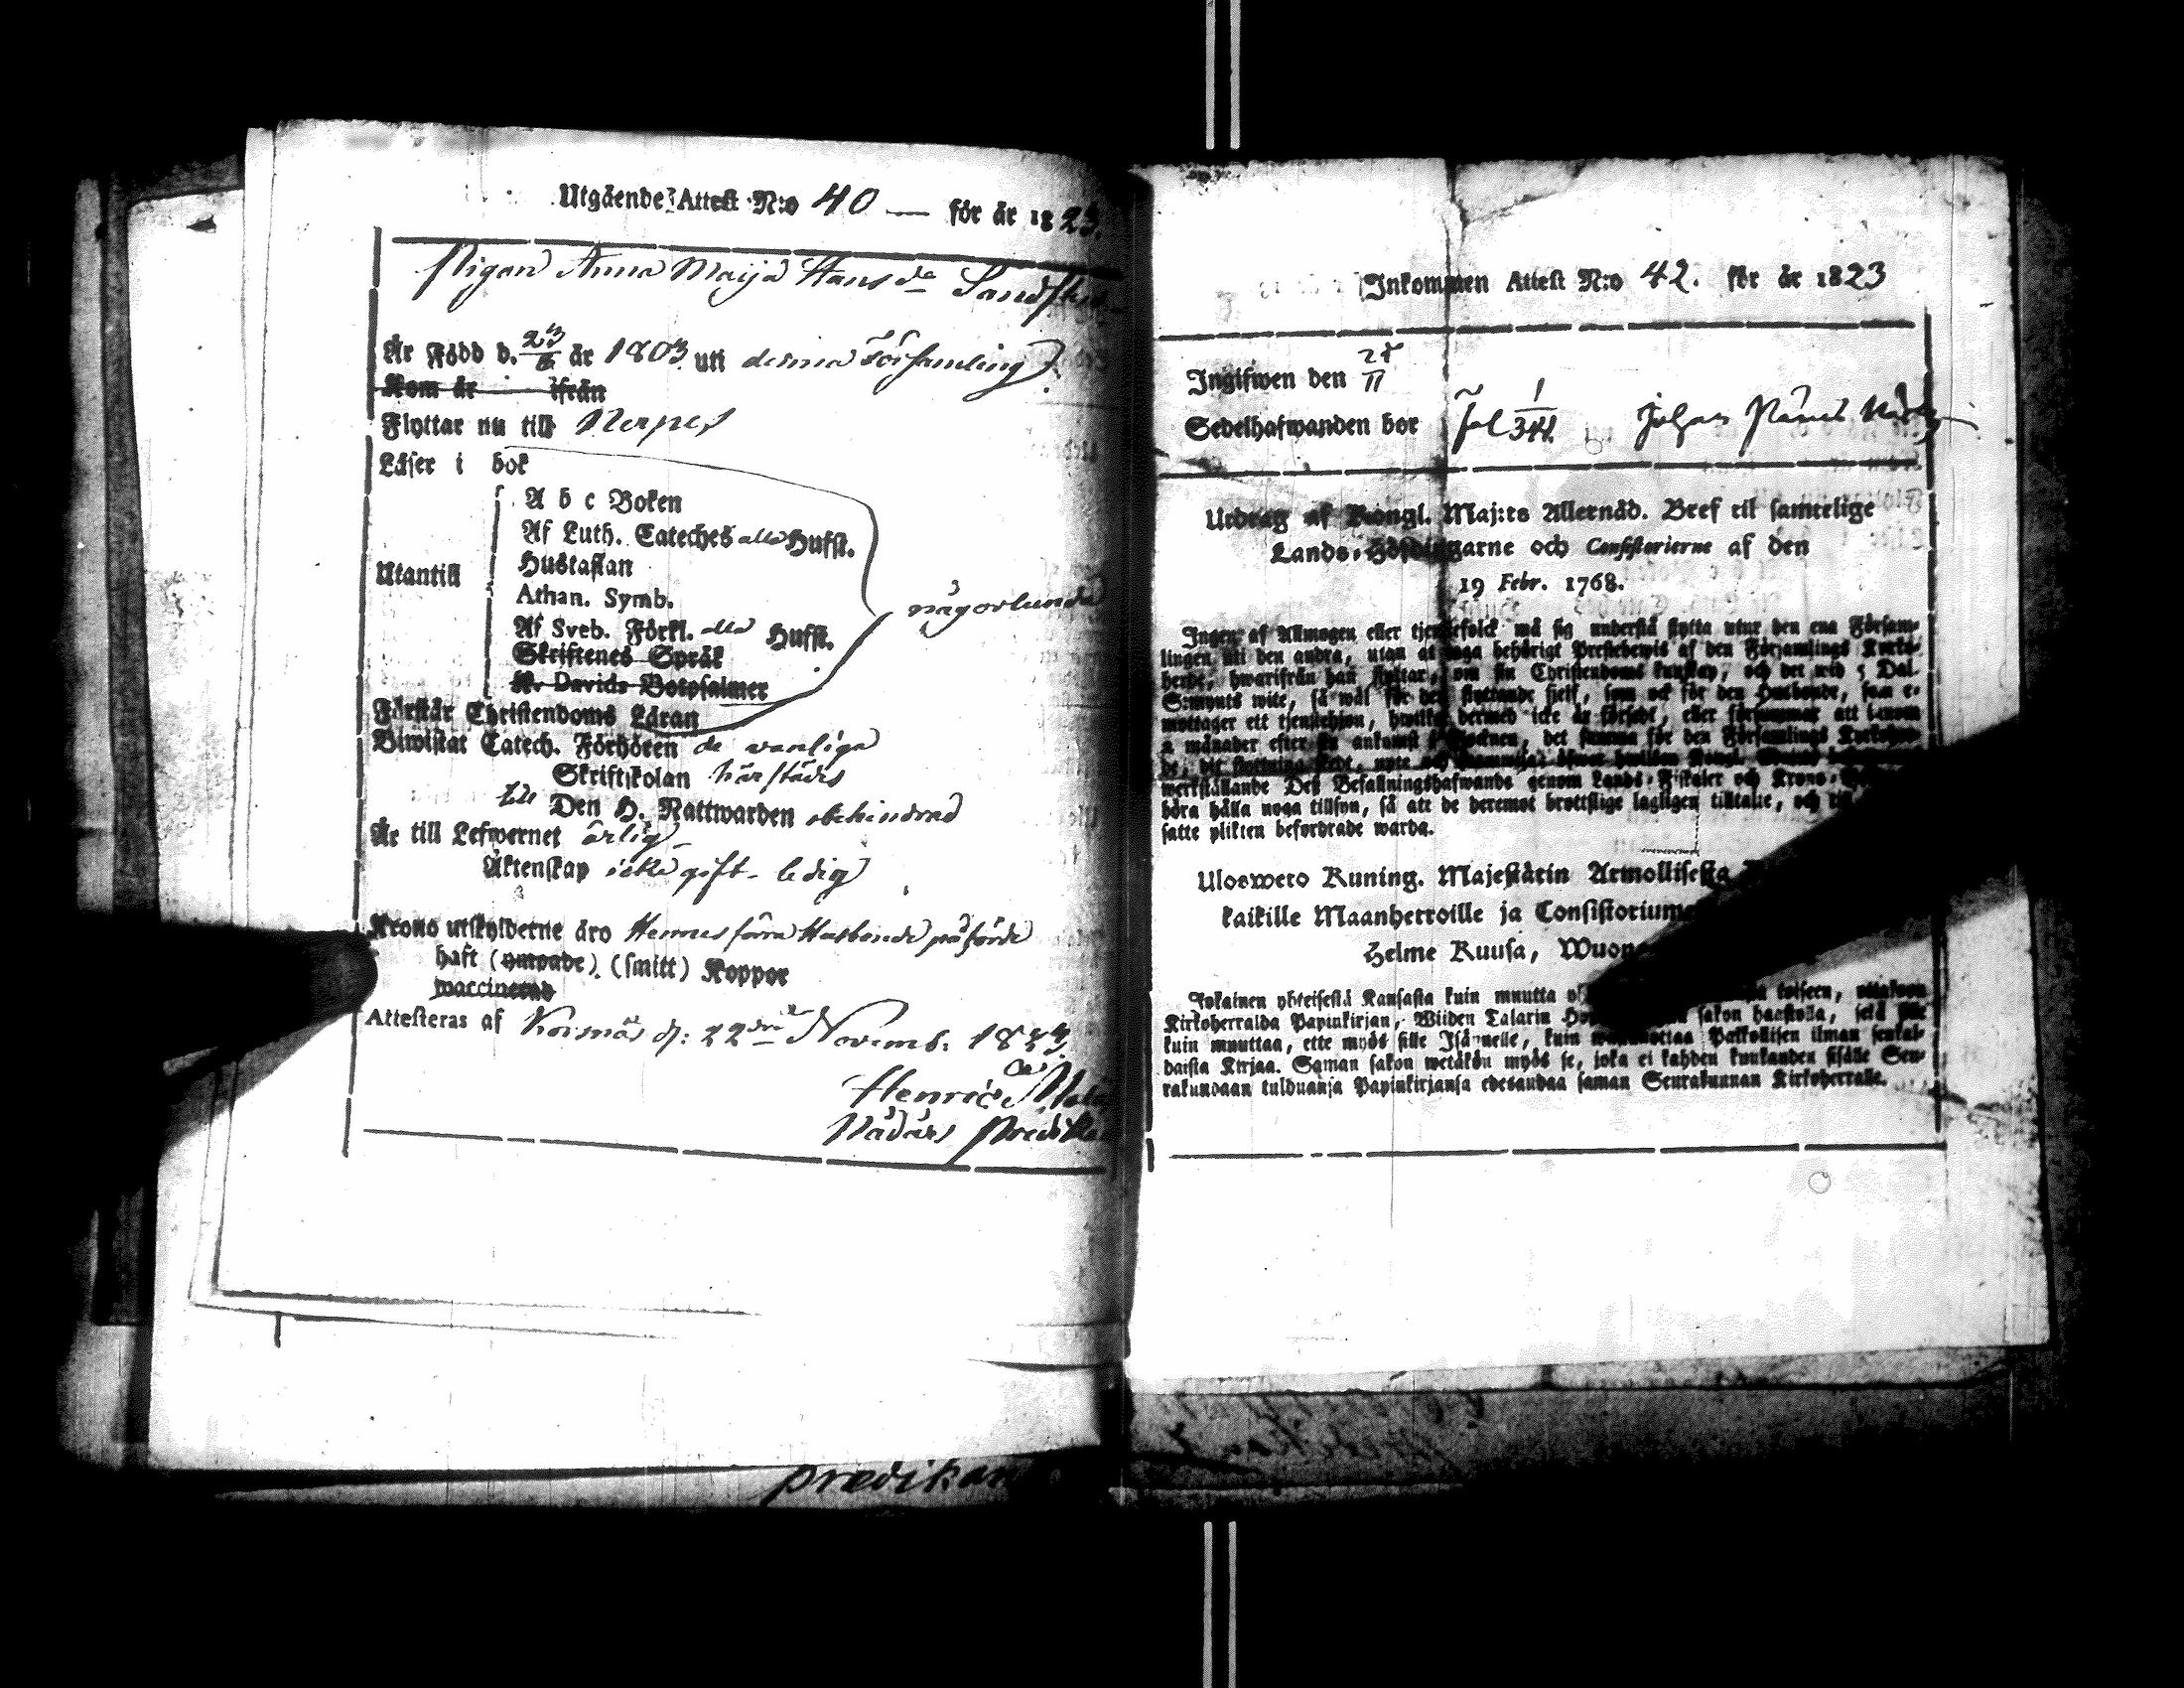 Utgående Attest N:o 40 — för år 1823.
Pigan Anna Maija Hansda
Är Född d. 23/6 år 1803 uti denna Församling.
Kom år ifrån
Flyttar nu till Nerpes
Läser i bok
A b c Boken
Af Luth. Cateches alla Hufst.
Hustaflan
Utantill
Athan. Symb.
någorlunda
Af Sveb. Förkl. alla Hufst.
Skriftenes Språk
K. Davids Botpsalmer
Förstår Christendoms Läran
Biwistat Catech. Förhören de vanliga
Skriftskolan härstädes
Den H. Nattwarden obehindrad
Är till Lefwernet ärlig
Äktenskap icke gift - ledig
Krono utskylderne äro Hennes förra Husbonde påförde
haft (ympade) (smitt) Koppor
waccinerad
Attesteras af Korsnäs d: 22dra Novemb. 1823
Henric
Sådärs Predikan
predikan
Inkommen Attest N:o 42. för år 1823
Ingifwen den
Sedelhafwanden bor fol 1/344
Utdrag af Kongl. Maj:ts Allernåd. Bref til samtelige
Lands-Höfdingarne och Consistorierne af den
19 Febr. 1768.
Ingen af Allmogen eller tjenstefolck må sig understå flytta utur den ena Försam-
lingen uti den andra, utan at taga behörigt Prestebewis af den Församlings Kyrko-
herde, hwarifrån han flyttar, om sin Christendoms kunskap, och det wid 5 Dal.
S:mynts wite, så wäl för den flyttande sjelf, som ock för den Husbonde, som e-
mottager ett tjenstehjon, hwilket dermed icke är försedt, eller försummar att inom
2 månader efter sin ankomst i Socknen, det samma för den Församlings Kyrkoher-
de, dit flyttning skedt, upte
werkställande Deß Befallningshafwande genom Lands-Fiskaler och Krono-
böra hålla noga tillsyn, så att de deremot brottslige lagligen tilltalte, och til
satte plikten befordrade warda.
Uloswero Kuning. Majestätin Armollisesta
kaikille Maanherroille ja Consistoriume
Helme Kuusa, Wuon
Jokainen yhteisestä Kansasta kuin muutta toiseen, ottakoon
Kirkoherralda Papinkirjan, Wiiden Talarin sakon haastolla, sekä
kuin muuttaa, ette myös sille Isännelle, kuin wastaanottaa Palkollisen ilman senkal-
daista Kirjaa. Saman sakon wetäkön myös se, joka ei kahden kuukauden sisälle Seu-
rakundaan tulduansa Papinkirjansa edesandaa saman Seurakunnan Kirkoherralle.